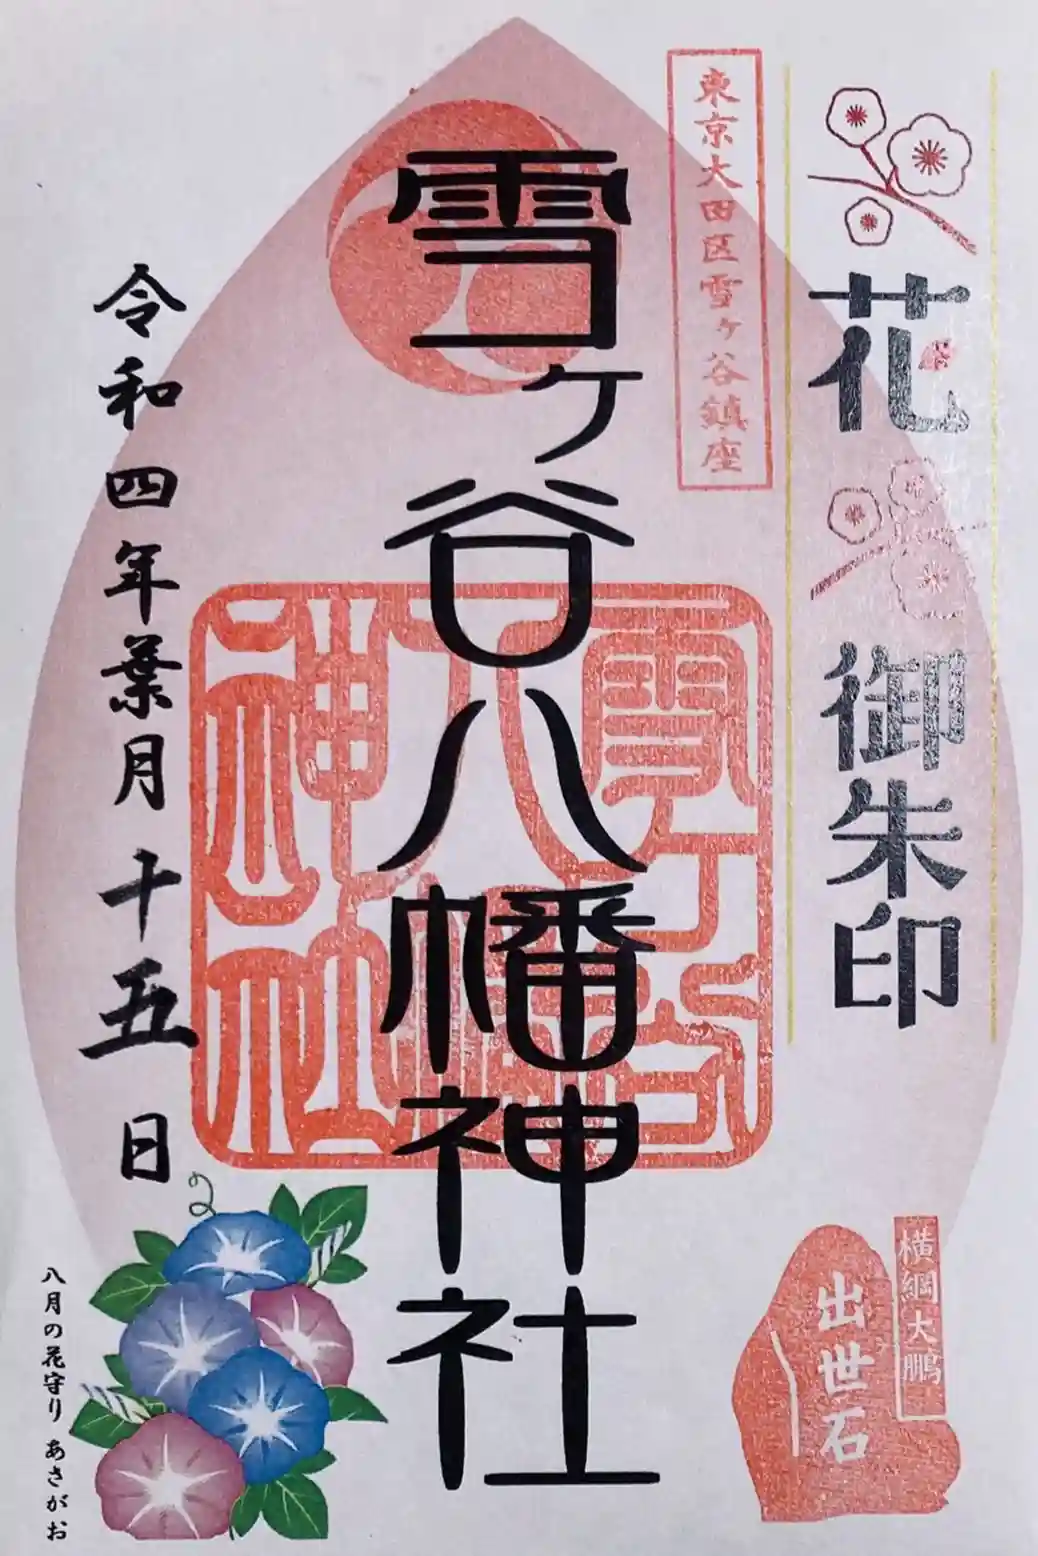 花御朱印
東京大田区雪ヶ谷鎮座
雪ヶ谷八幡神社
雪ヶ谷八幡神社
令和四年葉月十五日
横綱大鵬
出世石
八月の花守り あさがお